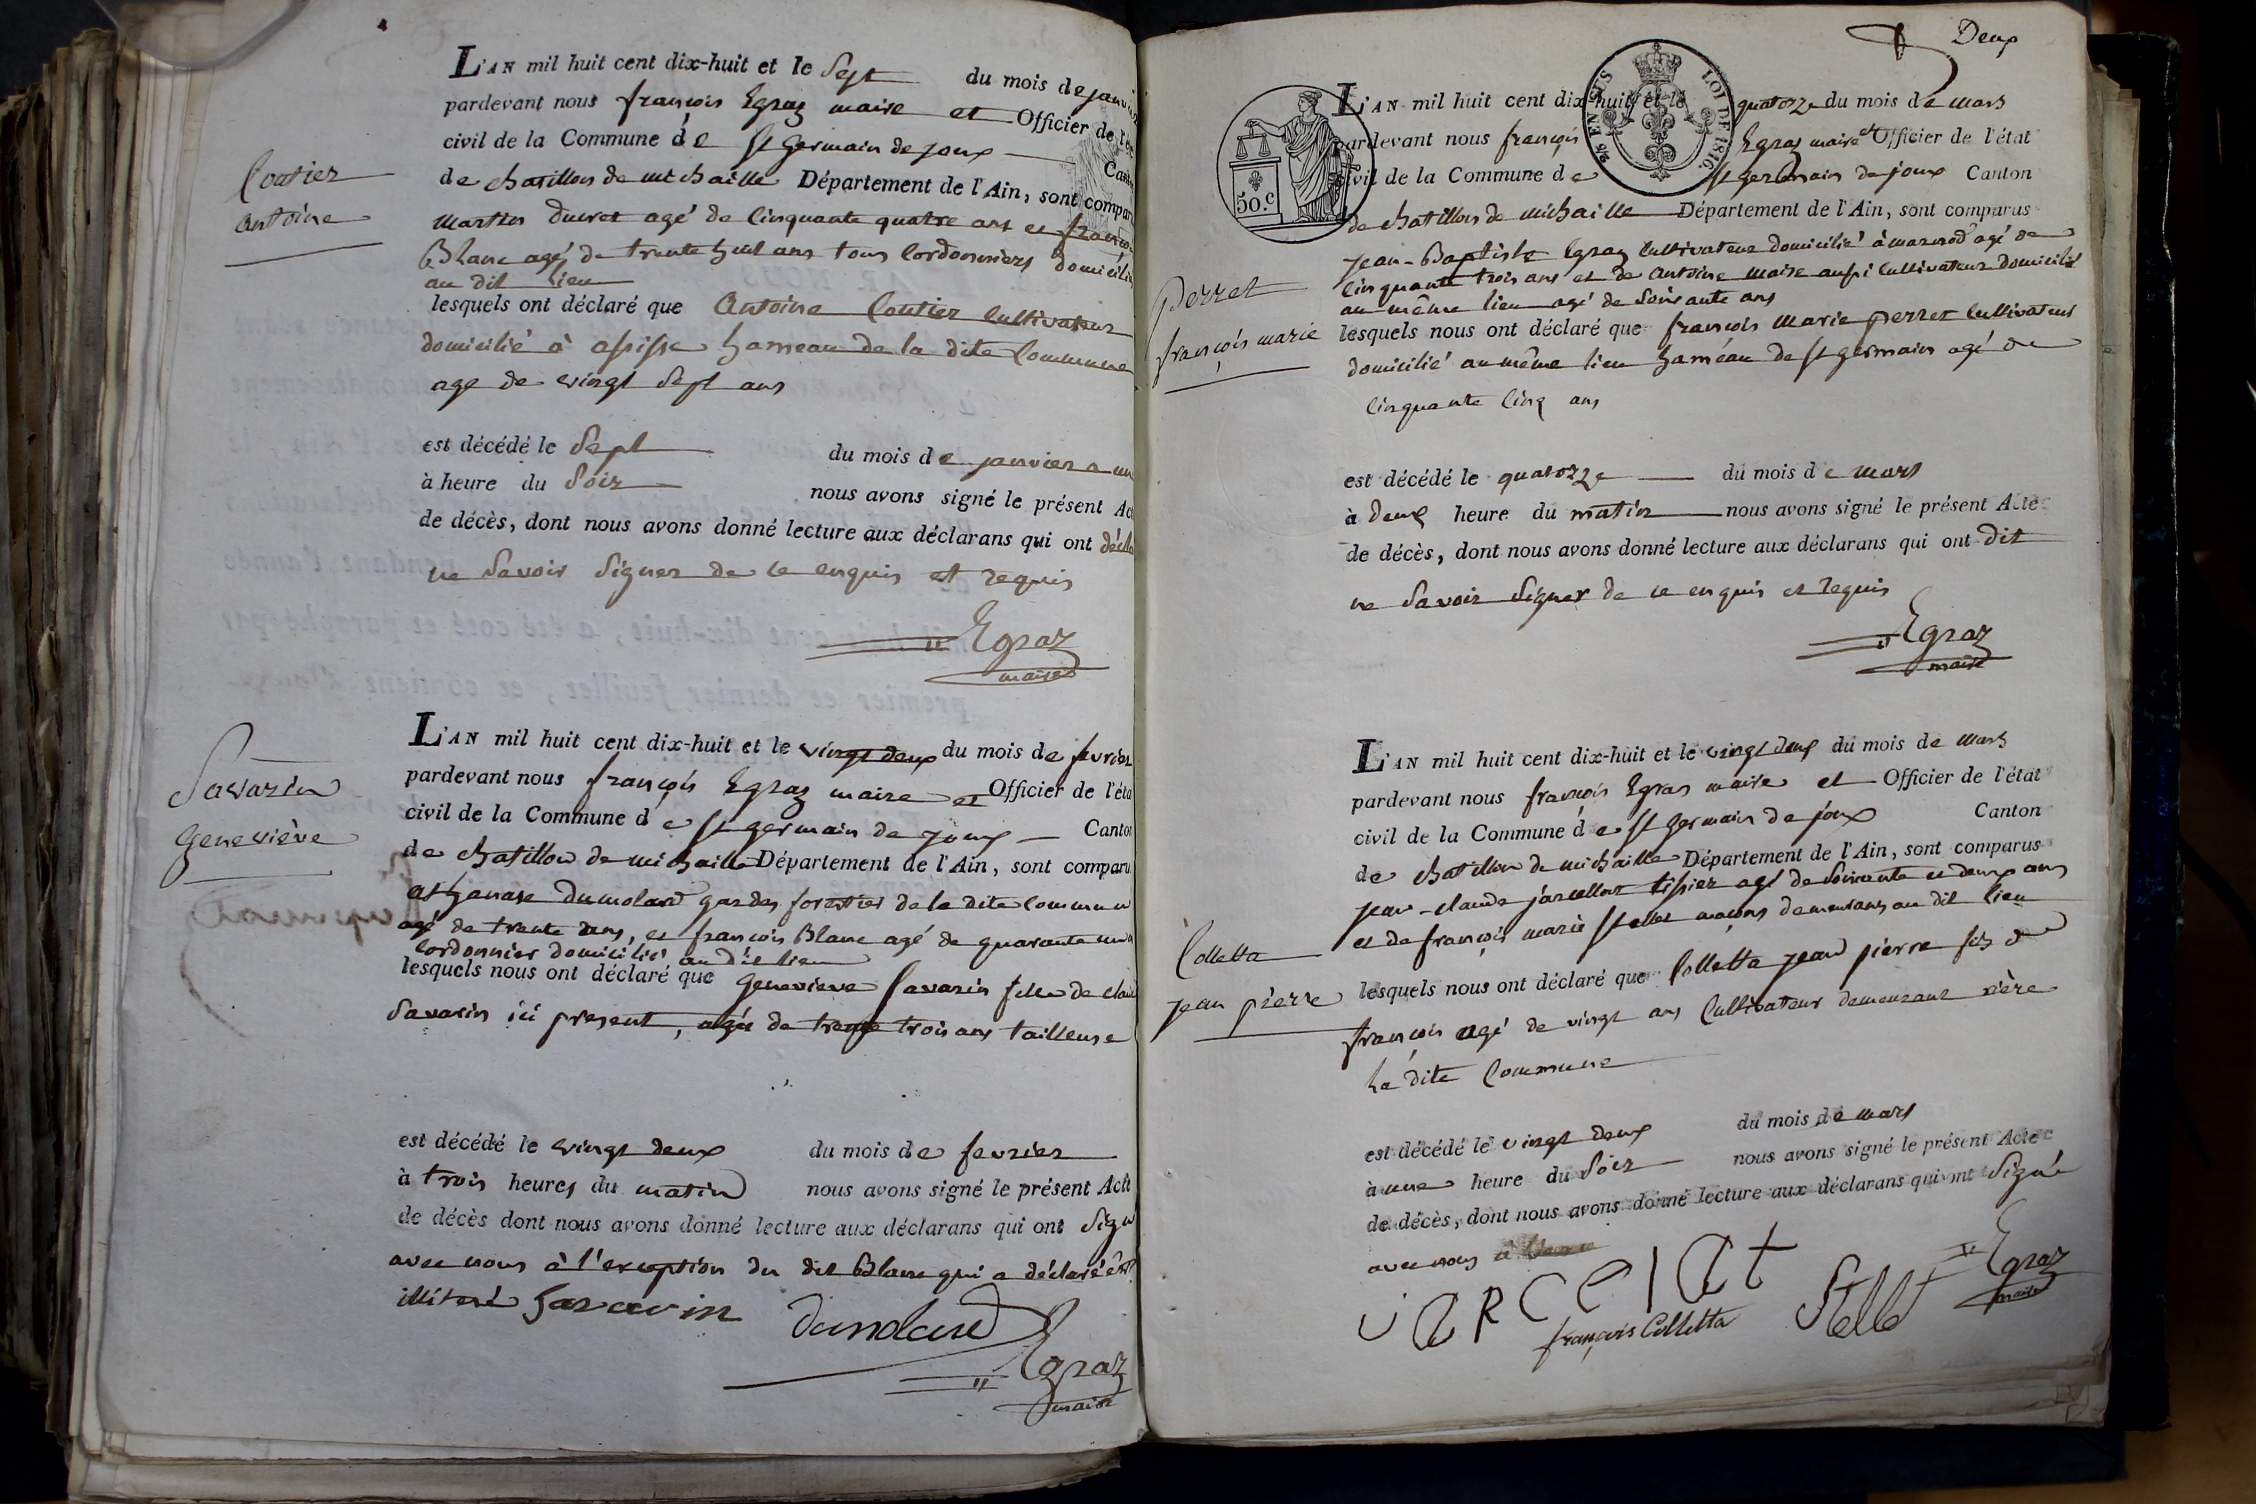 L'AN mil huit cent dix-huit et le Sept du mois de janvier
pardevant nous françois Egraz maire et Officier de l'ét
civil de la Commune de St germain de joux Canton
de chatillon de michaille Département de l'Ain, sont compar
Coutier
antoine
martin ducret agé de Cinquante quatre ans et françois
Blanc agé de trente huit ans tous Cordonniers domicilié
au dit lieu
lesquels ont déclaré que Antoine Coutier Cultivateur
domicilié à hameau de la dite Commune
age de vingt Sept ans
est décédé le Sept du mois de janvier a une
à heure du Soir nous avons signé le présent Act
de décès, dont nous avons donné lecture aux déclarans qui ont décla
ne Savoir Signer de ce enquis et requis
Egraz
maire
L'AN mil huit cent dix-huit et le vingt deux du mois de fevrier
pardevant nous françois Egraz maire et Officier de l'éta
civil de la Commune de St germain de joux Canton
de chatillon de michaille Département de l'Ain, sont comparu
Savarin
Geneviève
dumolard gardes forestier de la dite Commune
agé de trente ans, et françois Blanc agé de quarante
Cordonnier domicilié au dit lieu
lesquels nous ont déclaré que Genevieve Savarin fille de Clau
Savarin ici present, agée de trente trois ans tailleuse
est décédé le vingt deux du mois de fevrier
à trois heures du matin nous avons signé le présent Acte
de décès dont nous avons donné lecture aux déclarans qui ont Signé
avec nous à l'exception du dit Blanc qui a déclaré être
illiteré Savavin
Dumolard
Egraz
maire
Deux
50.c
EN SUS
LOI DE 1816.
L'AN mil huit cent dix-huit et le quatorze du mois de mars
pardevant nous françois Egraz maire et Officier de l'état
civil de la Commune de St germain de joux Canton
de chatillon de michaille Département de l'Ain, sont comparus
jean-Baptiste Egraz Cultivateur domicilié à marnod agé de
Cinquante trois ans et de antoine maire aussi Cultivateur domicilié
au même lieu agé de Soixante ans
Perret
françois marie
lesquels nous ont déclaré que françois marie perret Cultivateur
domicilié au même lieu haméau de St germain agé de
Cinquante Cinq ans
est décédé le quatorze du mois de mars
à deux heure du matin nous avons signé le présent Acte
de décès, dont nous avons donné lecture aux déclarans qui ont dit
ne Savoir Signer de ce enquis et requis
Egraz
maire
L'AN mil huit cent dix-huit et le vingt deux du mois de mars
pardevant nous françois Egraz maire et Officier de l'état
civil de la Commune de St germain de joux Canton
de chatillon de michaille Département de l'Ain, sont comparus
jean-claude jarcellat tissier agé de Soixante et deux ans
et de françois marie Stellet maçons demeurans au dit lieu
Colletta
jean pierre
lesquels nous ont déclaré que Colletta jean pierre fils de
françois agé de vingt ans Cultivateur demeurant rière
la dite Commune
est décédé le vingt deux du mois de mars
à une heure du Soir nous avons signé le présent Acte
de décès, dont nous avons donné lecture aux déclarans qui ont Signé
avec nous
jarcelat
françois Colletta
Stellet
Egraz
maire